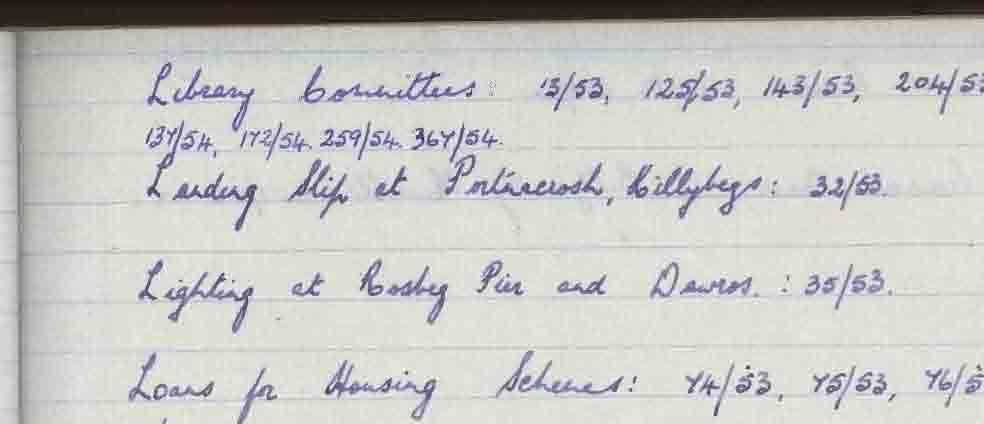 Library Committees: 13/53, 125/53, 143/53, 204/53
137/54, 172/54. 259/54. 367/54.
Landing Slip at Portnacrosh, Killybegs: 32/53.
Lighting at Rosbeg Pier and Dawros. : 35/53.
Loans for Housing Schemes: 74/53, 75/53, 76/5